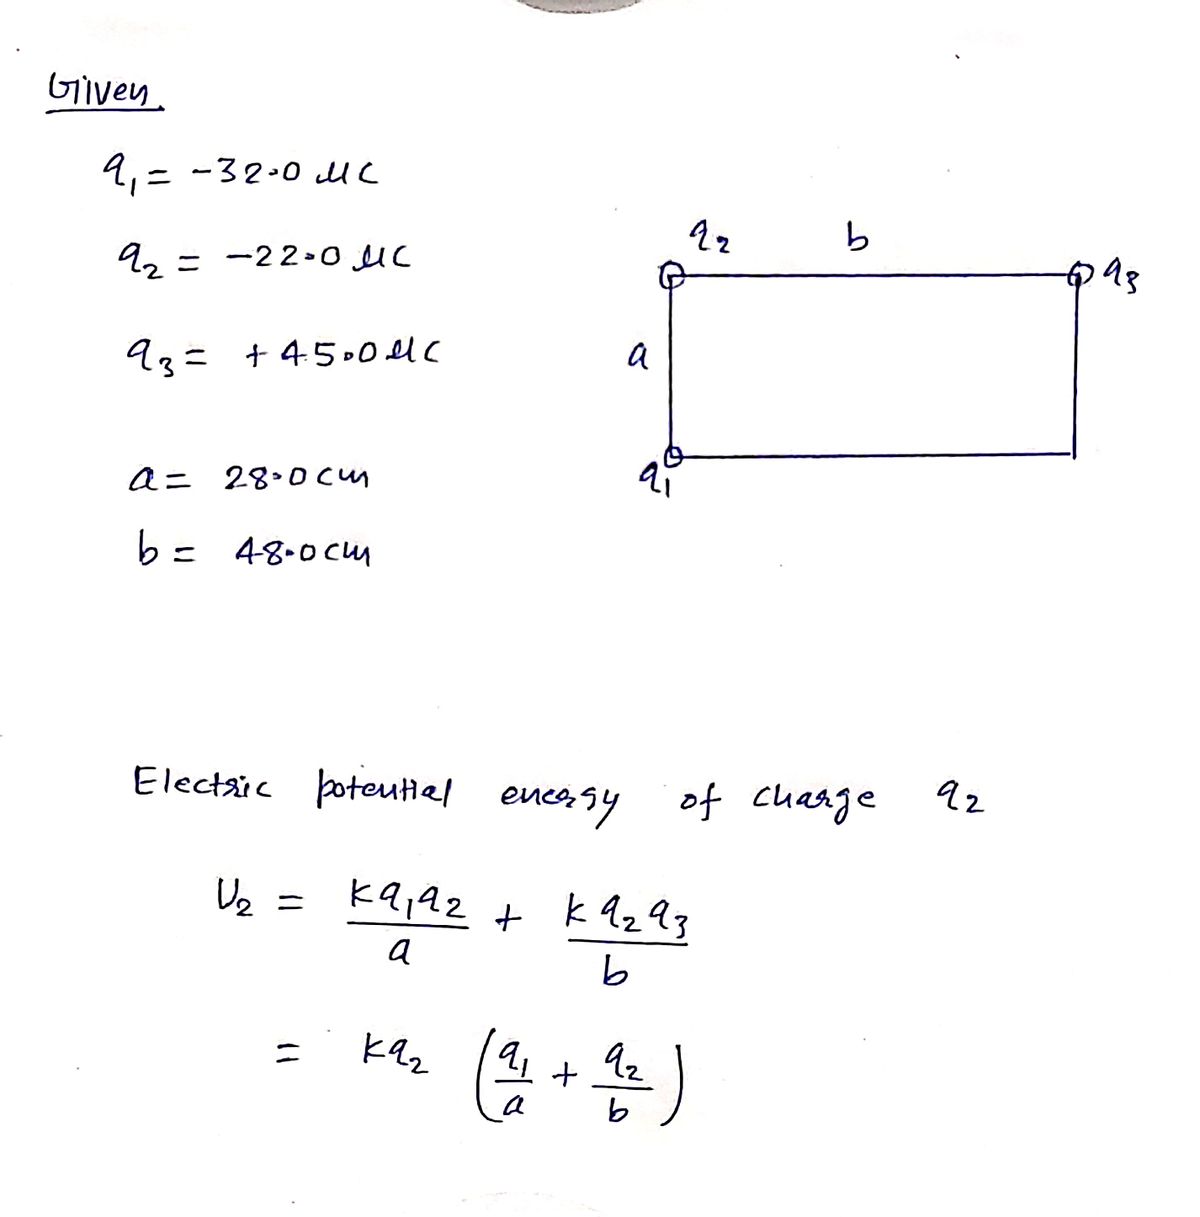 Given.
q₁ = -32.0 μC
q₂ = -22.0 μC
q₃ = +45.0 μC
a = 28.0 cm
b = 48.0 cm
q₂ b
q₃
a
q₁
Electric potential energy of charge q₂
U₂ = kq₁q₂/a + kq₂q₃/b
= kq₂ (q₁/a + q₂/b)